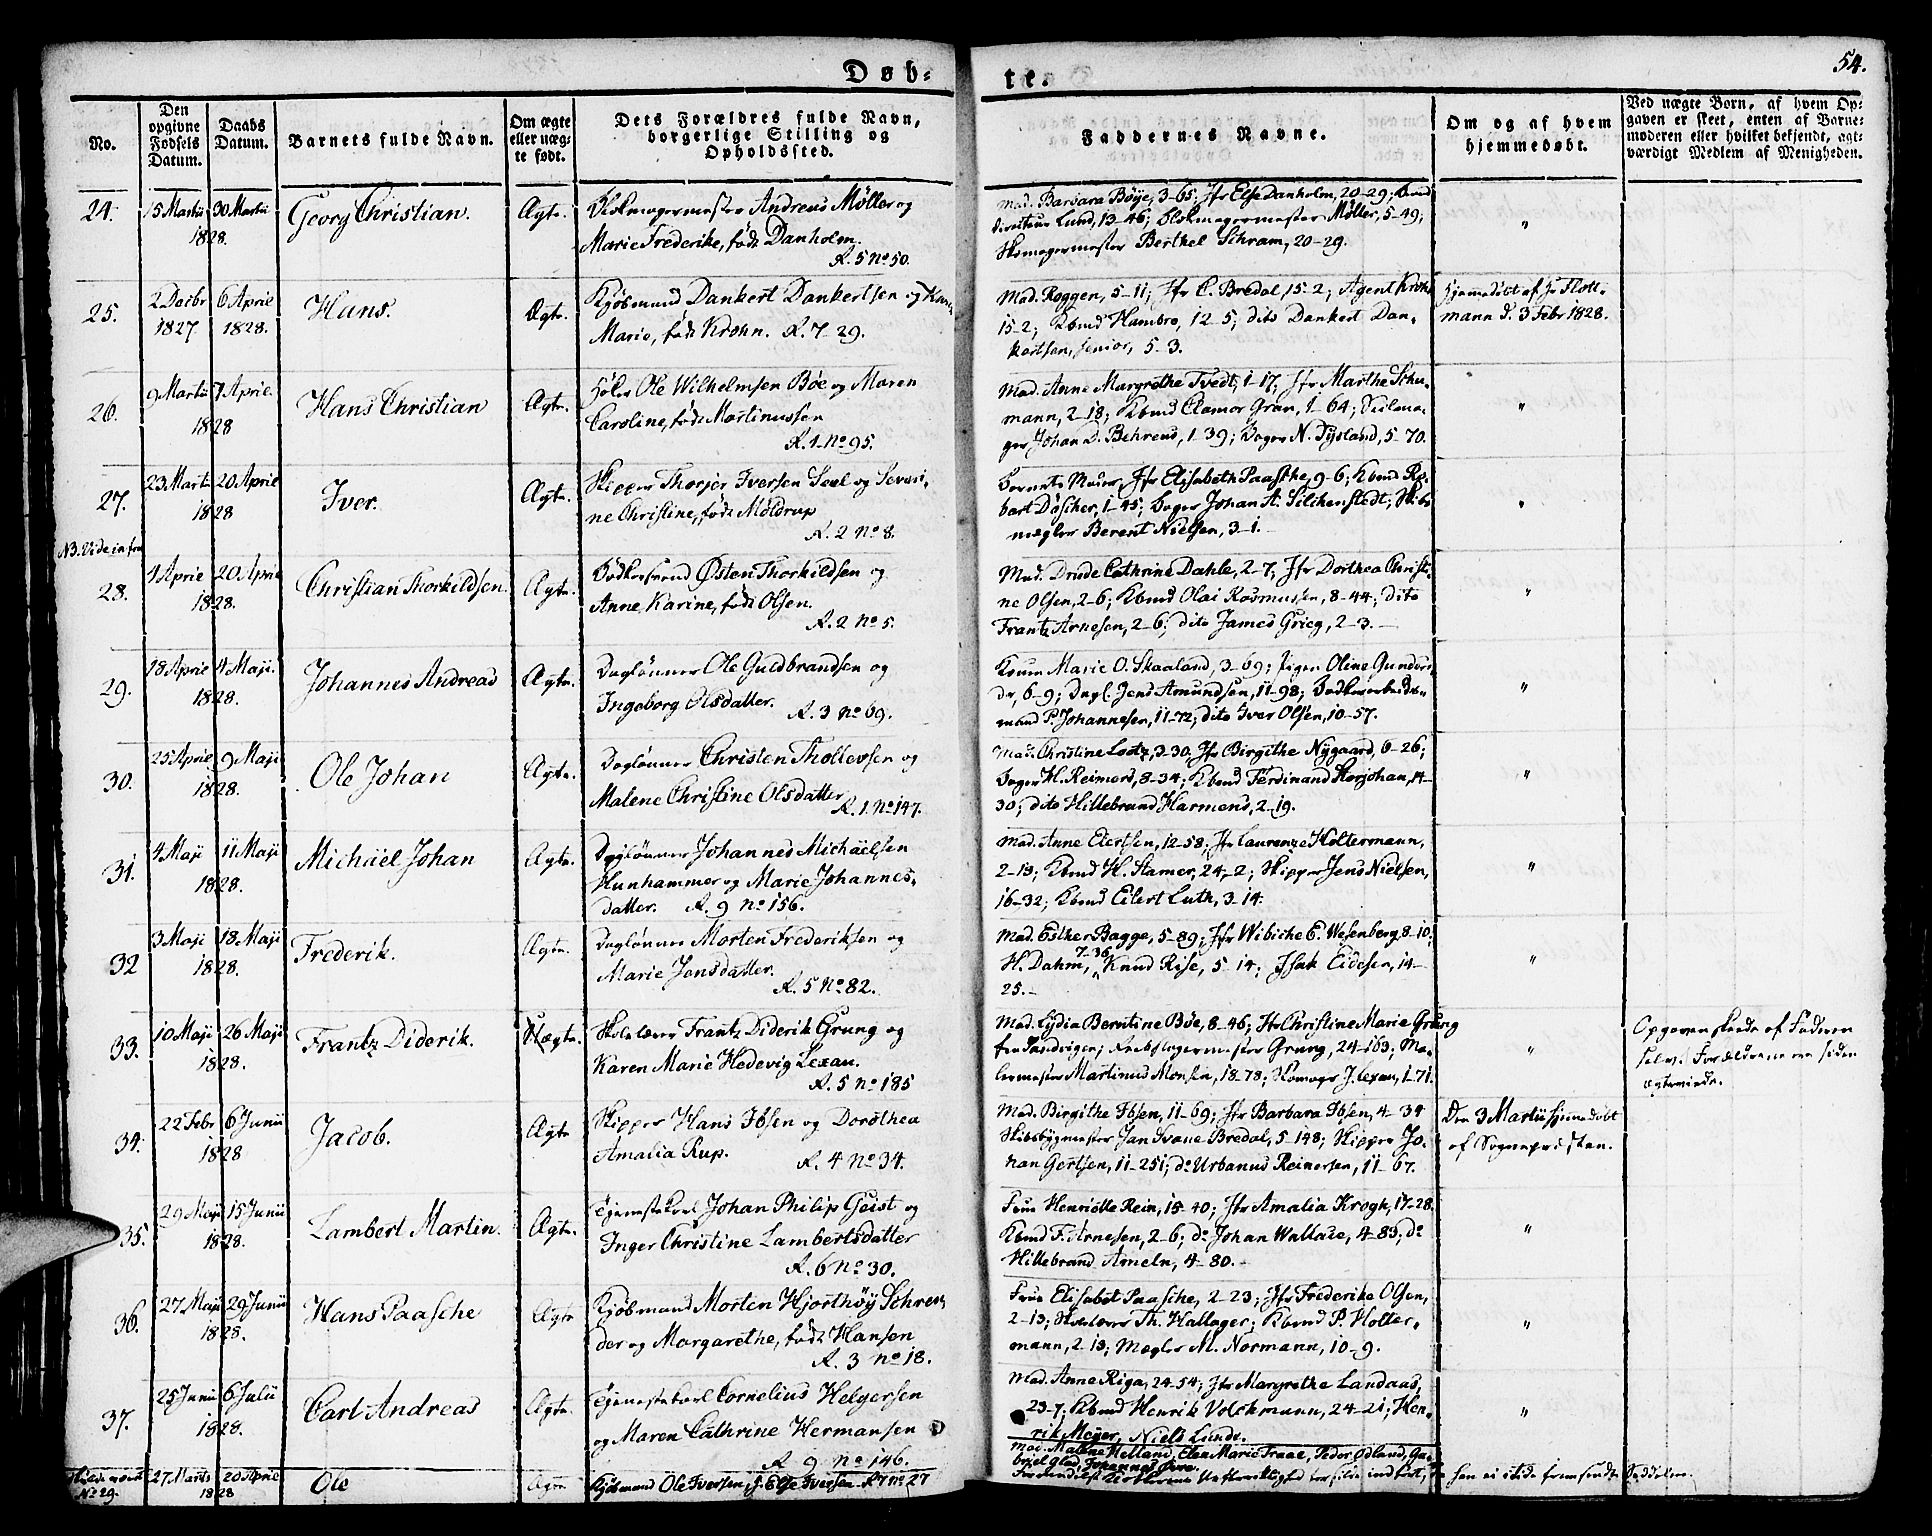 Døb-
te.
54.
No.
Den opgivne Fødsels Datum.
Daabs Datum.
Barnets fulde Navn.
Om ægte eller uægte født.
Dets Forældres fulde Navn, borgerlige Stilling og Opholdssted.
Faddernes Navne.
Om og af hvem hjemmedøbt.
Ved uægte Børn, af hvem Opgaven er skeet, enten af Barnemoderen eller hvilket bekjendt, agtværdigt Medlem af Menigheden.
24.
15 Martii 30 Martii
1828.
Georg Christian.
Ægte.
Blokmagermester Andreas Møller og
Marie Frederike, født Danholm.
R. 5 No 50.
Mad. Barbara Bøye, 3-65; Jfr Else Danholm, 20-29; Brand
directeur Lund, 13-46; Blokmagermester Møller, 5-49;
Skomagermester Berthel Schram, 20-29.
"
25.
2 Decbr 6 April
1827 1828.
Hans.
Ægte.
Kjøbmand Dankert Dankertsen og Karen
Marie, født Krohn. R. 7-29.
Mad. Roggen, 5-11; Jfr C. Bredal, 15-2; Agent Krohn
15-2; Kbmd Hambro, 12-5; dito Dankert Dan-
kertsen, senior, 5-3.
Hjemmedøbt af Hr Flott-
mann d. 3 Febr 1828.
26.
9 Martii 7 April.
1828
Hans Christian
Ægte.
Høker Ole Wilhelmsen Bøe og Maren
Caroline, født Martinussen
R. 1 No 95.
Mad. Anne Margrethe Tvedt, 1-17; Jfr Marthe Schu-
mann, 2-18; Kbmd Clamer Gran, 1-64; Seilma-
ger Johan D. Behrens, 1-39; Bager N. Tysland, 5-70.
"
27.
23 Martii 20 April
1828
Iver.
Ægte.
Skipper Thorjer Iversen Sael og Severi-
ne Christine, født Møldrup
R. 2 No 8.
Barnets Moder, Jfr Elisabeth Paasche, 9-6; Kbmd Ro-
bert Døscher, 1-45; Bager Johan A. Silchenstedt; Skibs
mægler Berent Nielsen, 3-1.
"
NB. Vide infra
28.
4 April 20 April
1828.
Christian Thorkildsen.
Ægte.
Bødkersvend Østen Thorkildsen og
Anne Karine, født Olsen.
R. 2 No 5.
Mad. Drude Cathrine Dahle, 2-7; Jfr Dorthea Christi-
ne Olsen, 2-6; Kbmd Olai Rasmussen, 8-44; dito
Frantz Arnesen, 2-6; dito James Grieg, 2-3.
"
29.
18 April 4 Maji.
1828.
Johannes Andreas
Ægte.
Daglønner Ole Guldbrandsen og
Ingeborg Olsdatter.
R. 3 No 69.
Konen Marie O. Skaaland, 3-69; Pigen Oline Gunders-
dr, 6-9; Dagl. Jens Amundsen, 11-98; Bødkerarbeids-
mand P. Johannesen, 11-72; dito Iver Olsen, 10-57.
"
30.
25 April 9 Maji
1828.
Ole Johan
Ægte.
Daglønner Christen Thollevsen og
Malene Christine Olsdatter
R. 1. No 147.
Mad. Christine Lootz, 3-30; Jfr Birgithe Nygaard, 6-26;
Bager H. Reimers, 8-34; Kbmd Ferdinand Korjohan, 14-
30; dito Hillebrand Harmens, 2-19.
"
31.
4 Maji 11 Maji
1828.
Michäel Johan
Ægte.
Daglønner Johannes Michäelsen
Hunhammer og Marie Johannes-
datter. R. 9 No 156.
Mad. Anne Eiertsen, 12-58; Jfr Laurenze Holtermann,
2-13; Kbmd H. Stamer, 24-2; Skipper Jens Nielsen,
16-32; Kbmd Eilert Luth, 3-14.
"
32
3 Maji 18 Maji
1828.
Frederik.
Ægte.
Daglønner Morten Frederiksen og
Marie Jensdatter.
R. 5 No 82.
Mad. Esther Bagge, 5-89; Jfr Wibicke E. Wesenberg, 8-10;
H. Dahm, 7-36, Knud Rise, 5-14; Isak Eidesen, 14-
25.-
"
33.
10 Maji 26 Maji
1828.
Frantz Diderik.
Uægte.
Skolelærer Frantz Diderik Grung og
Karen Marie Hedevig Lexau.
R. 5 No 185
Mad. Lydia Berntine Bøe, 8-46; Jfr Christine Marie Grung
fra Sandvigen; Rebslagermester Grung, 24-163; Ma-
lermester Martinus Monsen, 18-78; Skomager J. Lexau, 1-71.
"
Opgaven skeede af Faderen
selv. Forældrene ere siden
ægteviede.
34.
22 Febr 6 Junii
1828
Jacob.
Ægte
Skipper Hans Ibsen og Dorothea
Amalia Rup.
R. 4 No 34.
Mad. Birgithe Ibsen, 11-69; Jfr Barbara Ibsen, 4-34
Skibsbygmester Jan Svane Bredal, 5-148; Skipper Jo-
han Gertsen, 11-251; do Urbanus Reinersen, 11-67.
Den 3 Martii hjemmedøbt
af Sognepræsten.
35.
29 Maji 15 Junii
1828.
Lambert Martin.
Ægte.
Tjenestekarl Johan Philip Geist og
Inger Christine Lambertsdatter
R. 6 No 30.
Frue Henriette Rein, 15-40; Jfr Amalia Krogh, 17-28.
Kbmd F. Arnesen, 2-6; do Johan Wallace, 4-83, do
Hillebrand Ameln, 4-80.
"
36.
27 Maji 29 Junii
1828.
Hans Paasche
Ægte
Kjøbmand Morten Hjorthøy Schrøn-
der og Margarethe, født Hansen
R. 3 No 18.
Frue Elisabet Paasche, 2-23; Jfr Frederike Olsen,
2-13; Skolelærer Th. Hallager; Kbmd P. Holter-
mann, 2-13; Mægler M. Normann, 10-9.
"
37.
25 Junii 6 Julii
1828.
Carl Andreas
Ægte.
Tjenestekarl Cornelius Helgersen
og Maren Cathrine Hermansen
R. 9 No 146.
Mad. Anne Riga, 24-54; Jfr Margrethe Landaas,
23-7; Kbmd Henrik Volckmann, 24-21; Hen-
rik Meyer, Niels Lunde.
"
No 29.
27 Martii 20 April
1828
Ole
Ægte
Kjøbmand Ole Iversen, f. Else Iversen R 7 No 27
Mad. Malene Helland, Elen Marie Traae, Peder Odland, Ga-
briel Glad, Johannes